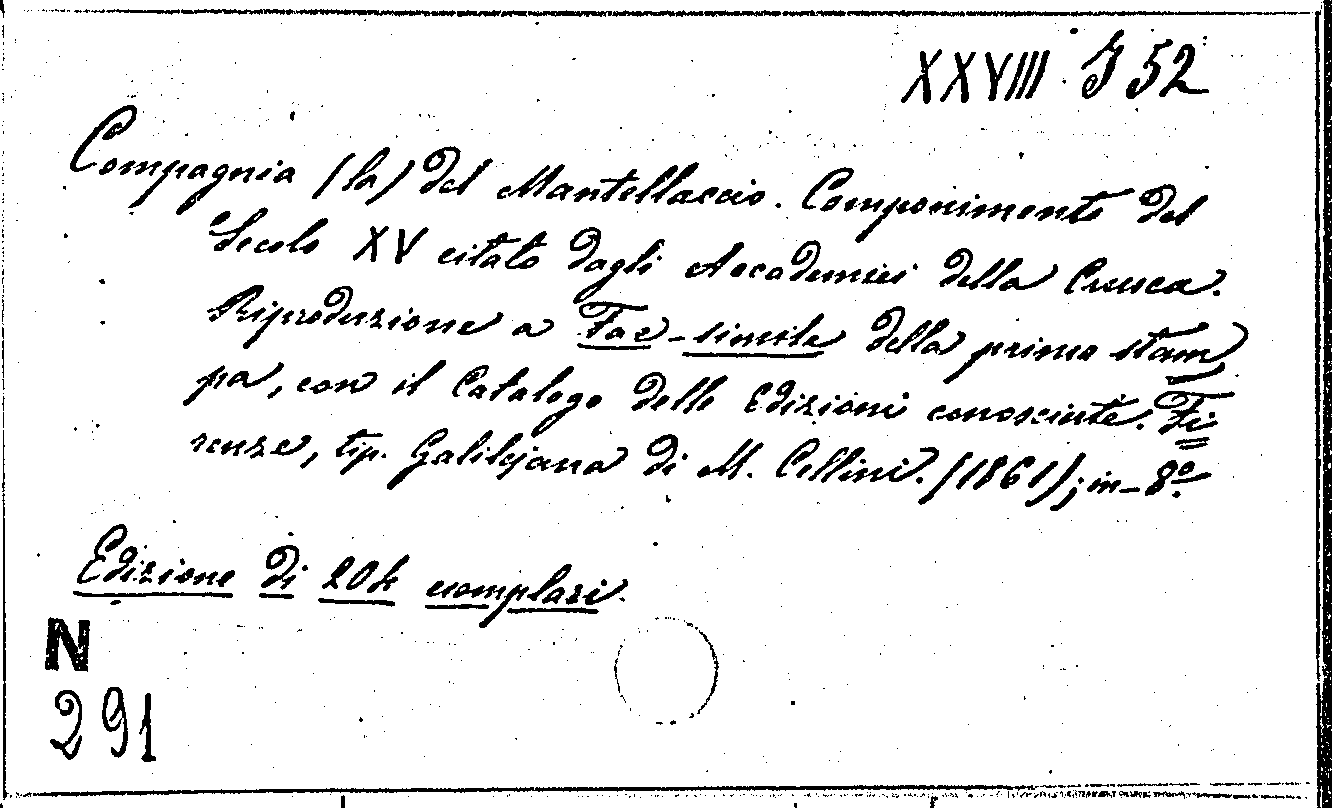 XXVIII J 52
Compagnia (la) del Mantellaccio. Componimento del
Secolo XV citato dagli Accademici della Crusca.
Riproduzione a Fac-simile della prima stam
pa, con il Catalogo delle Edizioni conosciute. Fi
renze, tip. Galilejana di M. Cellini. (1861); in-8º.
Edizione di 204 esemplari.
N
291